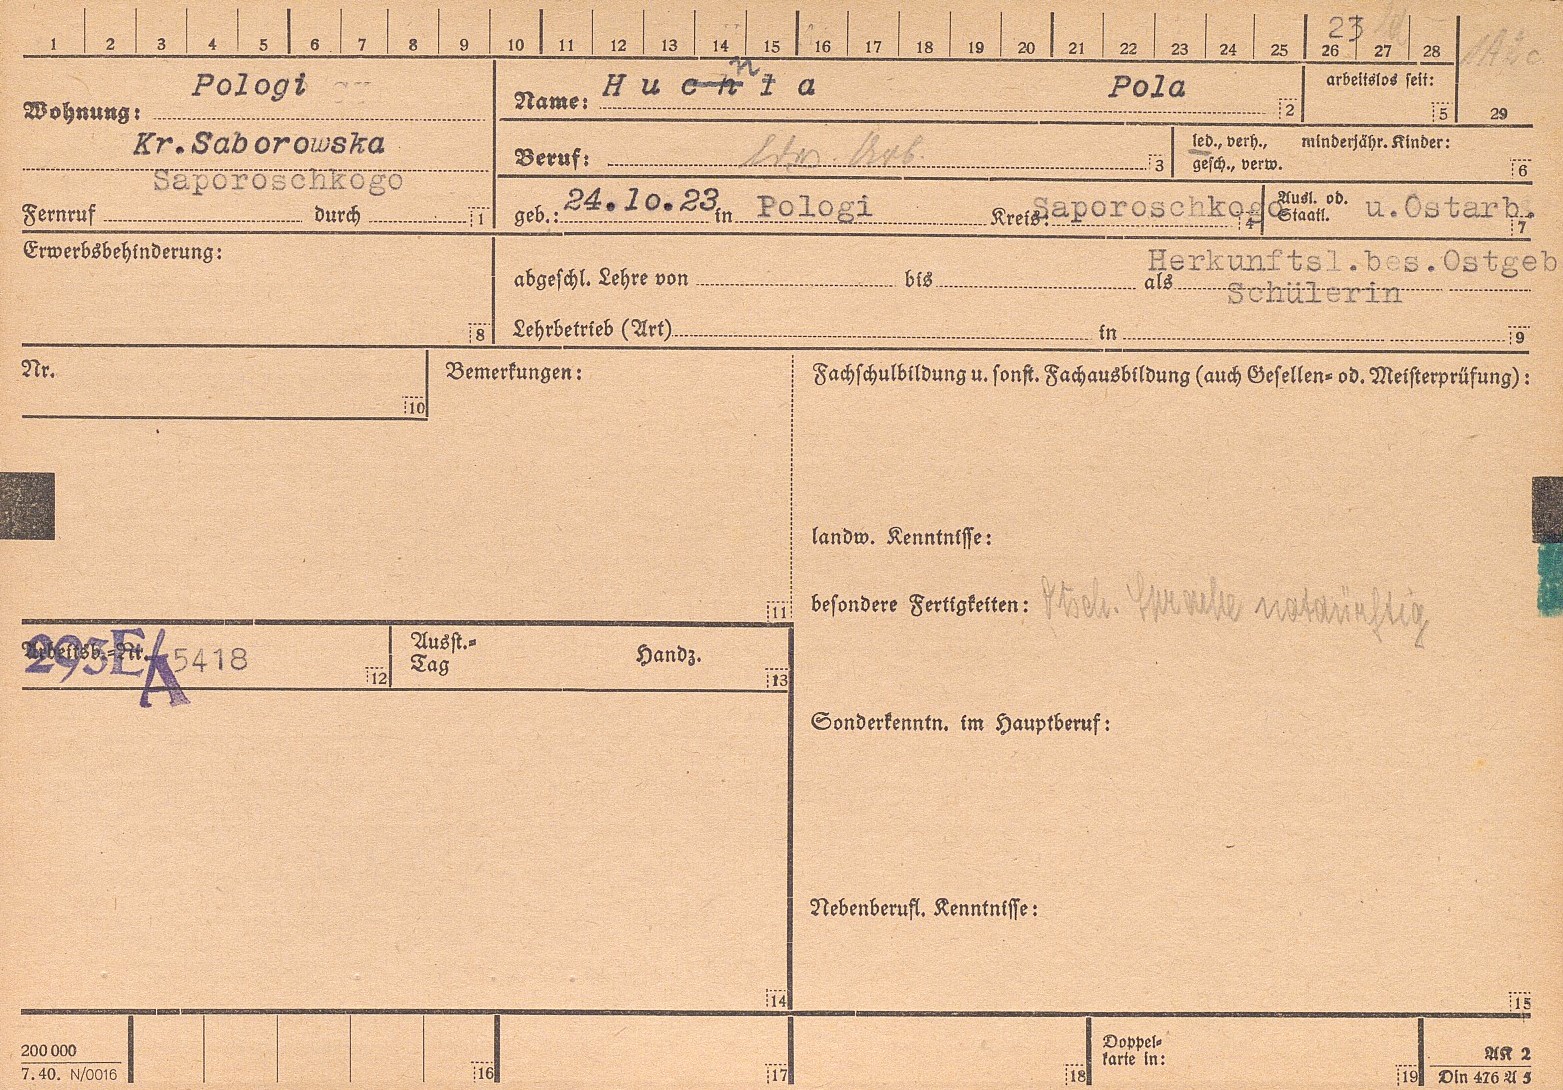 1 2 3 4 5 6 7 8 9 10 11 12 13 14 15 16 17 18 19 20 21 22 23 24 25 26 27 28 29
23
Wohnung: Pologi
Kr.Saborowska
Saporoschkogo
Fernruf durch 1
n
Name: H u c h t a Pola 2
arbeitslos seit: 5
Beruf: Arb. 3
led., verh., minderjähr. Kinder:
gesch., verw. 6
geb.: 24.10.23 in Pologi Kreis: Saporoschkogo 4
Ausl. od. Staatl. u.Ostarb. 7
Erwerbsbehinderung: 8
Herkunftsl.bes.Ostgeb
abgeschl. Lehre von bis als Schülerin
Lehrbetrieb (Art) in 9
Nr. 10
Bemerkungen: 11
Fachschulbildung u. sonst. Fachausbildung (auch Gesellen= od. Meisterprüfung):
landw. Kenntnisse:
besondere Fertigkeiten: Dtsch. Sprache notdürftig
Arbeitsb.=Nr. 293E/A 5418 12
Ausst.=
Tag Handz. 13
Sonderkenntn. im Hauptberuf:
Nebenberufl. Kenntnisse:
14 15
200 000
7. 40. N/0016
16 17 18
Doppel=
karte in: 19
AK 2
Din 476 A 5